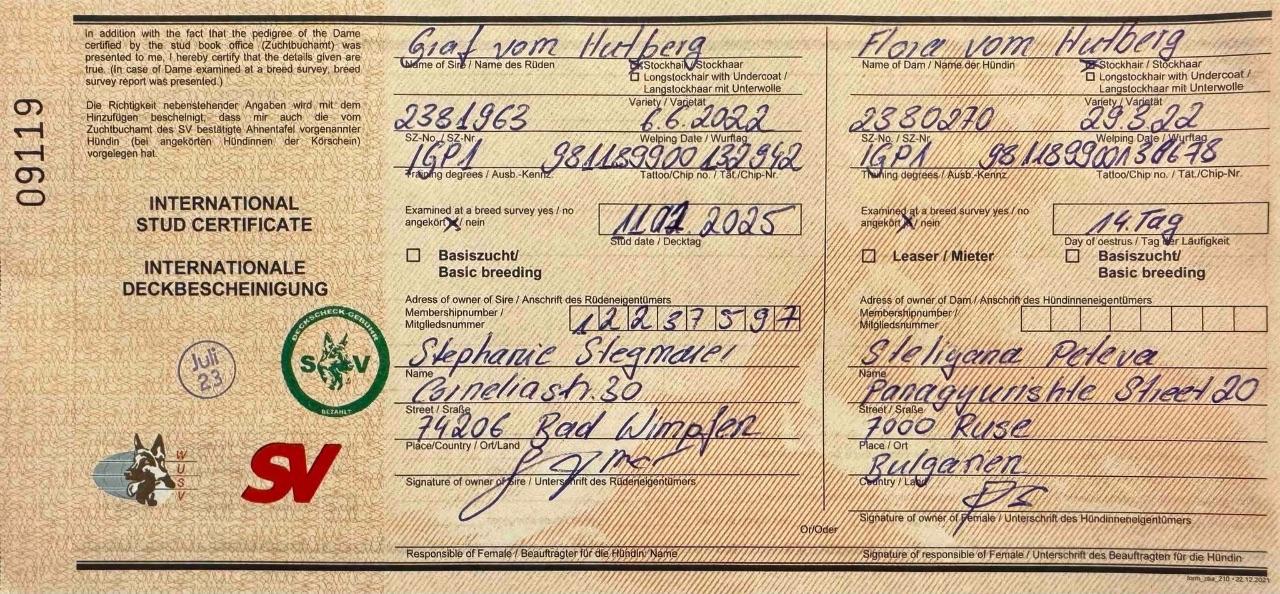 In addition with the fact that the pedigree of the Dame
certified by the stud book office (Zuchtbuchamt) was
presented to me, I hereby certify that the details given are
true. (In case of Dame examined at a breed survey, breed
survey report was presented.)
Die Richtigkeit nebenstehender Angaben wird mit dem
Hinzufügen bescheinigt, dass mir auch die vom
Zuchtbuchamt des SV bestätigte Ahnentafel vorgenannter
Hündin (bei angekörten Hündinnen der Körschein)
vorgelegen hat.
09119
INTERNATIONAL
STUD CERTIFICATE
INTERNATIONALE
DECKBESCHEINIGUNG
DECKSCHECK-GEBÜHR
SV
BEZAHLT
Juli
23
WUSV
SV
Graf vom Hutberg
Name of Sire / Name des Rüden
Stockhair / Stockhaar
Longstockhair with Undercoat /
Langstockhaar mit Unterwolle
Variety / Varietät
2381963 6.6.2022
SZ-No. / SZ-Nr. Welping Date / Wurftag
IGP1 981189900132942
Training degrees / Ausb.-Kennz. Tattoo/Chip no. / Tät./Chip-Nr.
Examined at a breed survey yes / no
angekört / nein
2025
Stud date / Decktag
Basiszucht/
Basic breeding
Adress of owner of Sire / Anschrift des Rüdeneigentümers
Membershipnumber /
Mitgliedsnummer
12237597
Stephanie Stegmaier
Name
Corneliastr. 30
Street / Sraße
74206 Bad Wimpfen
Place/Country / Ort/Land
Signature of owner of Sire / Unterschrift des Rüdeneigentümers
Or/Oder
Responsible of Female / Beauftragter für die Hündin: Name
Flora vom Hutberg
Name of Dam / Name der Hündin
Stockhair / Stockhaar
Longstockhair with Undercoat /
Langstockhaar mit Unterwolle
Variety / Varietät
2380270 29.3.22
SZ-No. / SZ-Nr. Welping Date / Wurftag
IGP1
Training degrees / Ausb.-Kennz. Tattoo/Chip no. / Tät./Chip-Nr.
Examined at a breed survey yes / no
angekört / nein
14. Tag
Day of oestrus / Tag der Läufigkeit
Leaser / Mieter
Basiszucht/
Basic breeding
Adress of owner of Dam / Anschrift des Hündinneneigentümers
Membershipnumber /
Mitgliedsnummer
Steliyana Peteva
Name
Panagyurishte Street 20
Street / Sraße
7000 Ruse
Place / Ort
Bulgarien
Country / Land
Signature of owner of Female / Unterschrift des Hündinneneigentümers
Signature of responsible of Female / Unterschrift des Beauftragten für die Hündin
form_zaa_210 • 22.12.2021